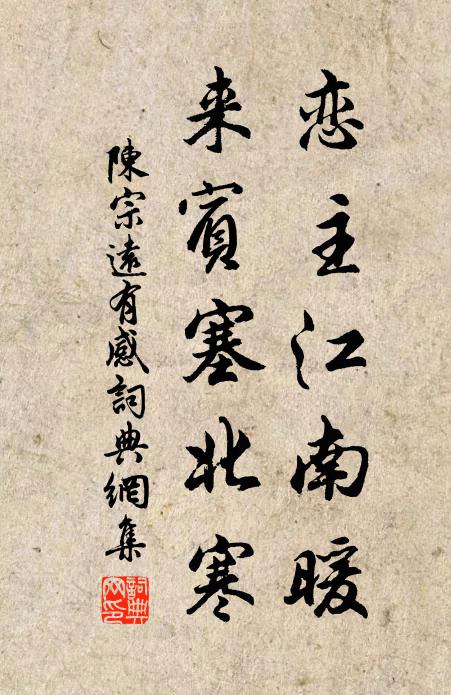 恋主江南暖
来賓塞北寒
陳宗遠有感詞典網集
詞典網印